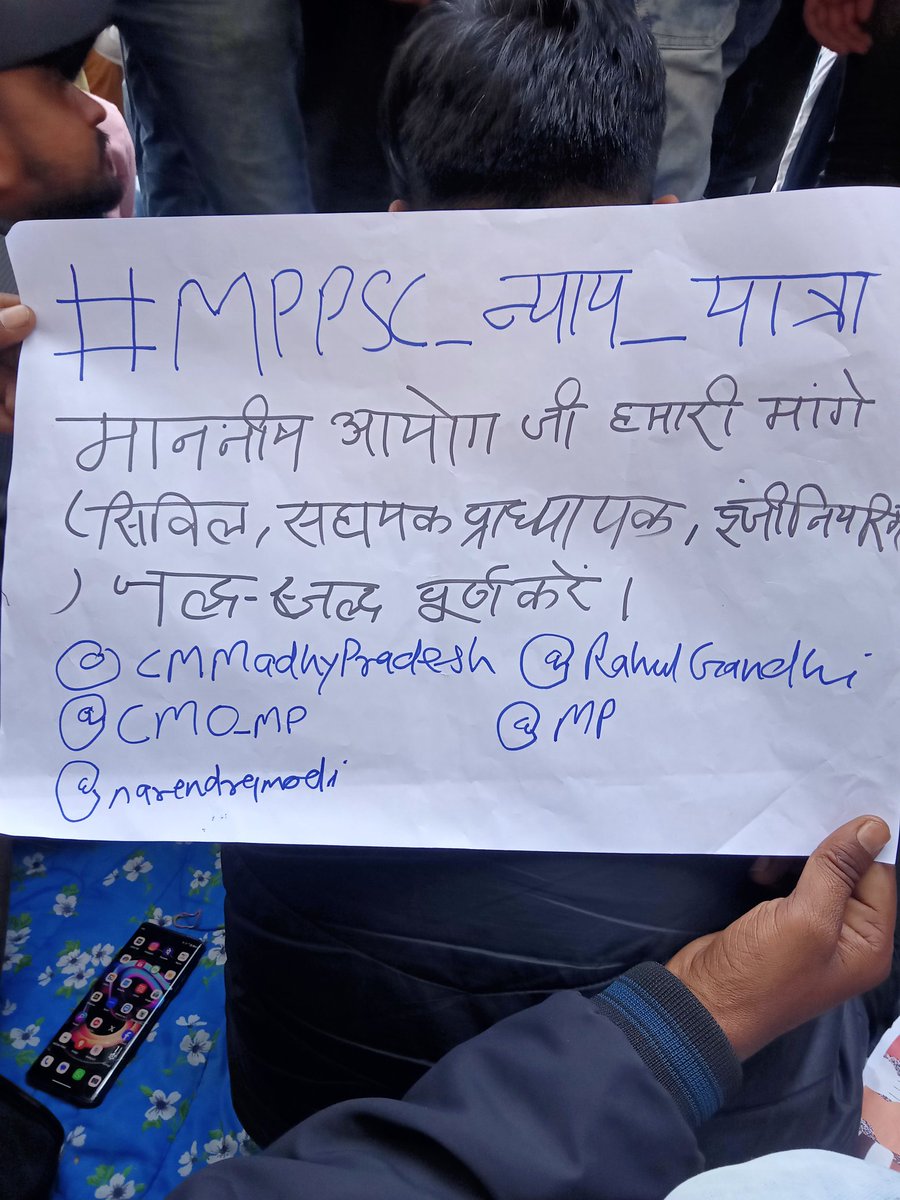 #MPPSC_न्याय_यात्रा
माननीय आयोग जी हमारी मांगे
(सिविल, सहायक प्राध्यापक, इंजीनियरिंग
) जल्द-जल्द पूर्ण करें।
@CMMadhyPradesh @RahulGandhi
@CMO_MP @MP
@narendramodi